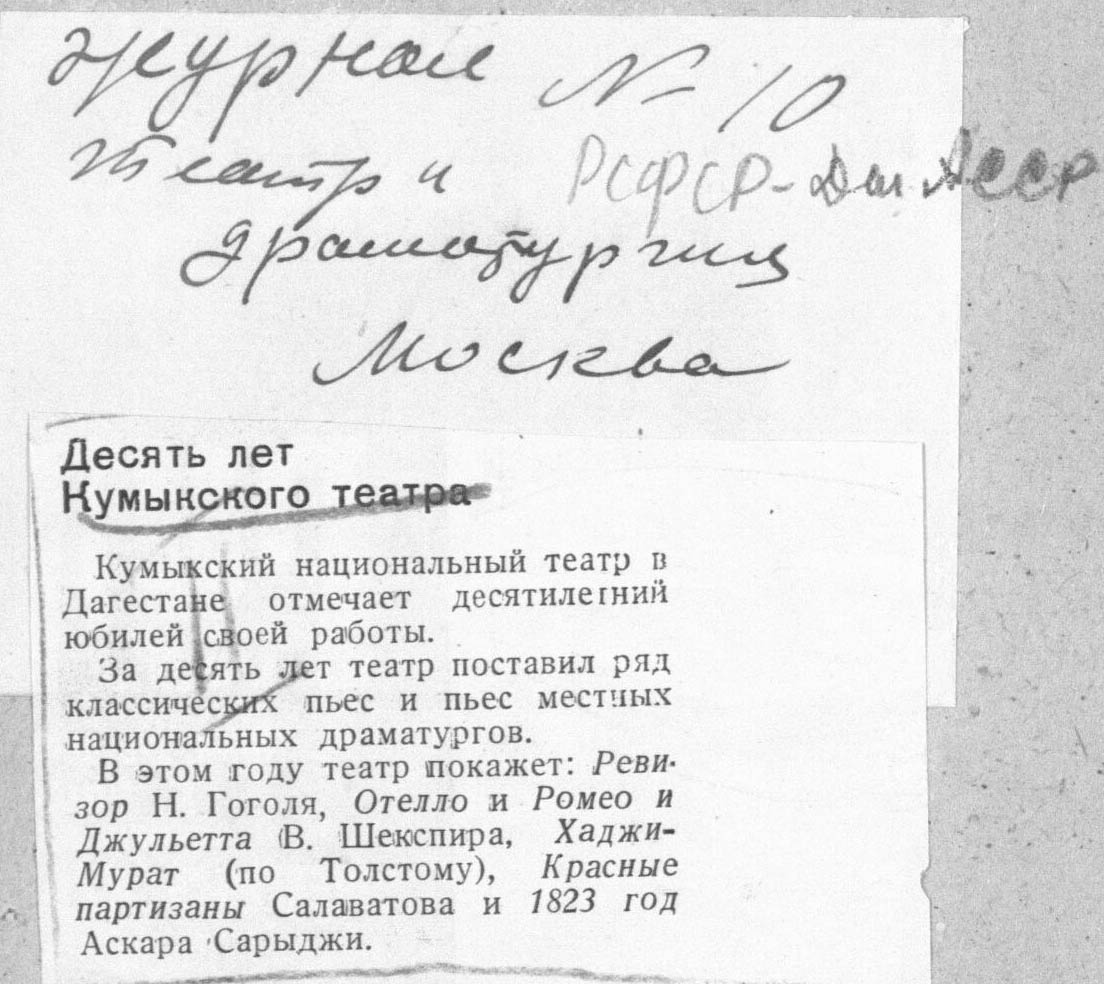 журнал № 10
театр и
РСФСР - Даг АССР
драматургия
Москва
Десять лет
Кумыкского театра
Кумыкский национальный театр в
Дагестане отмечает десятилетний
юбилей своей работы.
За десять лет театр поставил ряд
классических пьес и пьес местных
национальных драматургов.
В этом году театр покажет: Реви-
зор Н. Гоголя, Отелло и Ромео и
Джульетта В. Шекспира, Хаджи-
Мурат (по Толстому), Красные
партизаны Салаватова и 1823 год
Аскара Сарыджи.